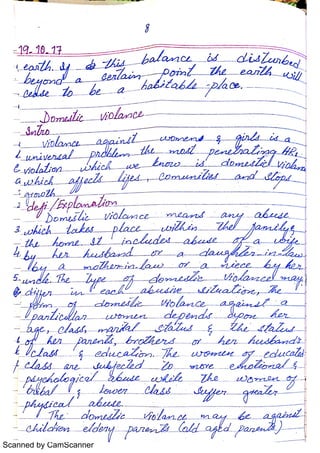 8
19-10-17
earth. If this balance is disturbed
beyond a certain point the earth will
cease to be a habitable place.
Domestic violance
Intro
violance against womens & girls is a
universal problem the most penetrating HRs
violation which we know is domestic violance
which affects lifes, comunities and stops
growth.
defi/Explanation
Domestic violance means any abuse
which takes place within the family
the home. It includes abuse of a wife
by her husband or a daughter-in-law
by a mother-in-law or a niece by her
uncle. The type of domestic violance may
differ in each abusive situation, The
form of domestic violance against a
particular women depends upon her
age, class, marital status & the status
of her parents, brothers or her husband's
class & education. The women of educated
class are subjected to more emotional &
psychological abuse while the women of
tribal & lower class suffer greater
physical abuse.
The domestic violance may be against
children eldery parents (old aged parents)
Scanned by CamScanner